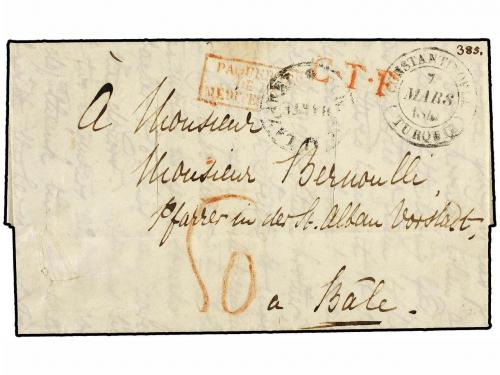 385.
C.T.F
CONSTANTINOPLE
7
MARS
TURQUIE
À Monsieur
Monsieur Bernoulli,
Pfarrer in der St. Alban Vorstadt,
à Bâle.